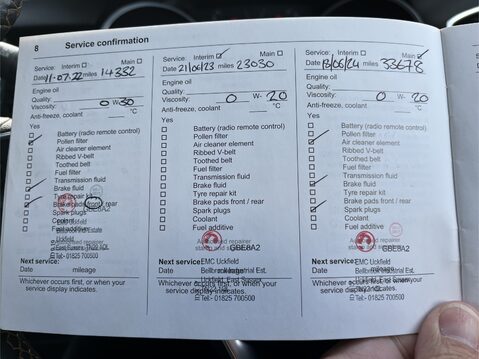 8 Service confirmation
Service: Interim Main
Date 11-07-22 miles 14352
Engine oil
Quality:
Viscosity: 0 W- 30
Anti-freeze, coolant °C
Yes
Battery (radio remote control)
Pollen filter
Air cleaner element
Ribbed V-belt
Toothed belt
Fuel filter
Transmission fluid
Brake fluid
Tyre repair kit
Brake pads front / rear
Spark plugs
Coolant
Fuel additive
Uckfield
Tel:- 01825 700500
Next service:
Date mileage
Whichever occurs first, or when your
service display indicates.
Service: Interim Main
Date 21/06/23 miles 23030
Engine oil
Quality:
Viscosity: 0 W- 20
Anti-freeze, coolant °C
Yes
Battery (radio remote control)
Pollen filter
Air cleaner element
Ribbed V-belt
Toothed belt
Fuel filter
Transmission fluid
Brake fluid
Tyre repair kit
Brake pads front / rear
Spark plugs
Coolant
Fuel additive
GBE8A2
Next service: EMC Uckfield
Date mileage
Whichever occurs first, or when your
service display indicates.
Tel:- 01825 700500
Service: Interim Main
Date 13/06/24 miles 33678
Engine oil
Quality:
Viscosity: 0 W- 20
Anti-freeze, coolant °C
Yes
Battery (radio remote control)
Pollen filter
Air cleaner element
Ribbed V-belt
Toothed belt
Fuel filter
Transmission fluid
Brake fluid
Tyre repair kit
Brake pads front / rear
Spark plugs
Coolant
Fuel additive
GBE8A2
Next service: EMC Uckfield
Date mileage
Whichever occurs first, or when your
service display indicates.
Tel:- 01825 700500